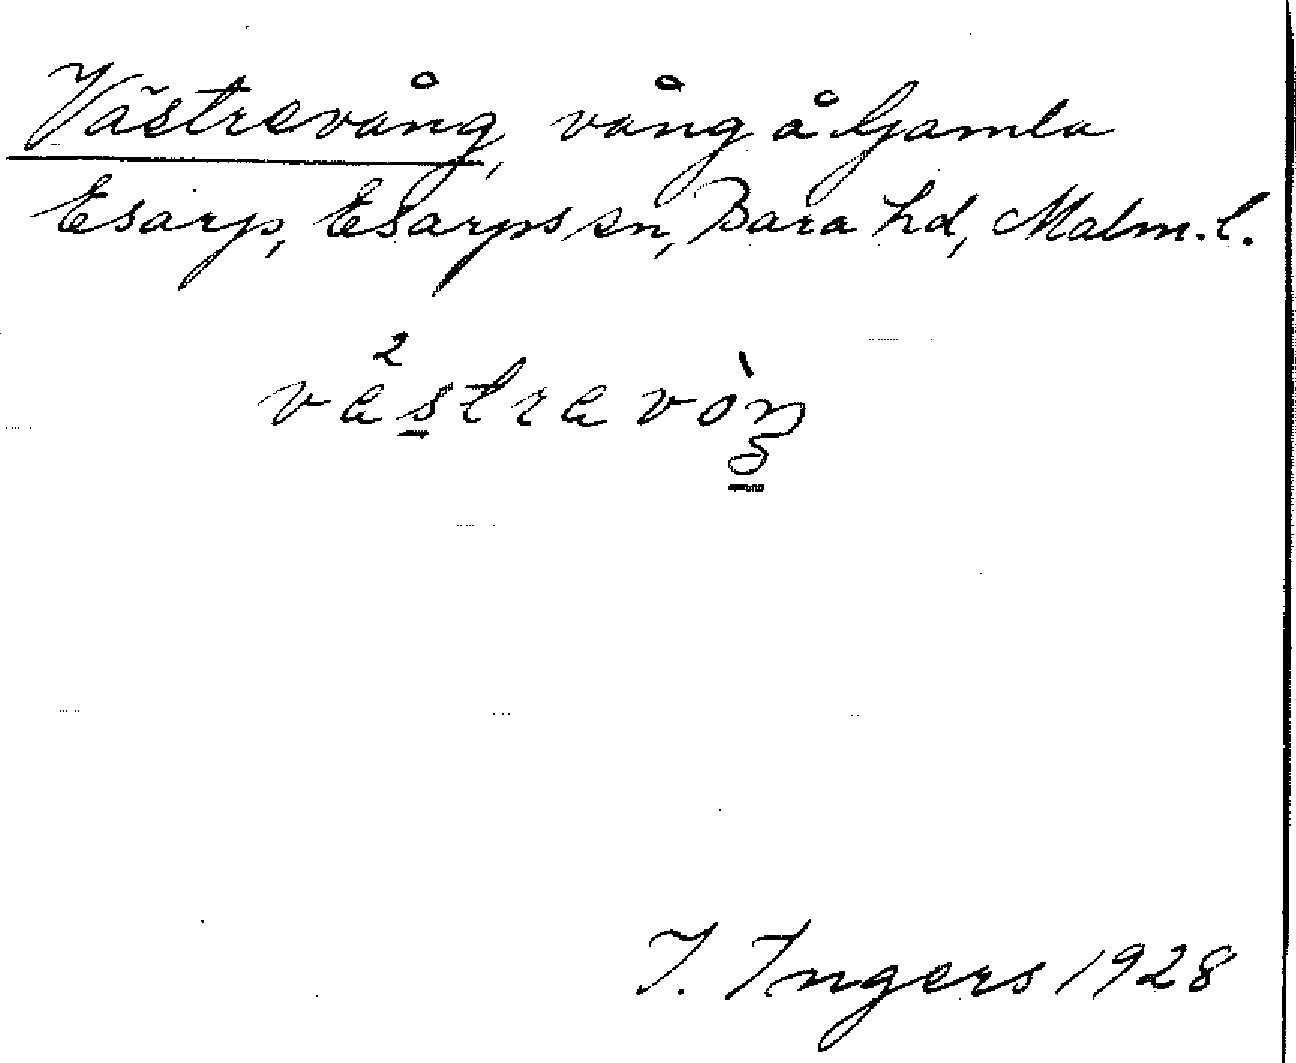 Västrevång, vång å Gamla
Esarp, Esarps sn, Bara hd, Malm. l.
I. Ingers 1928